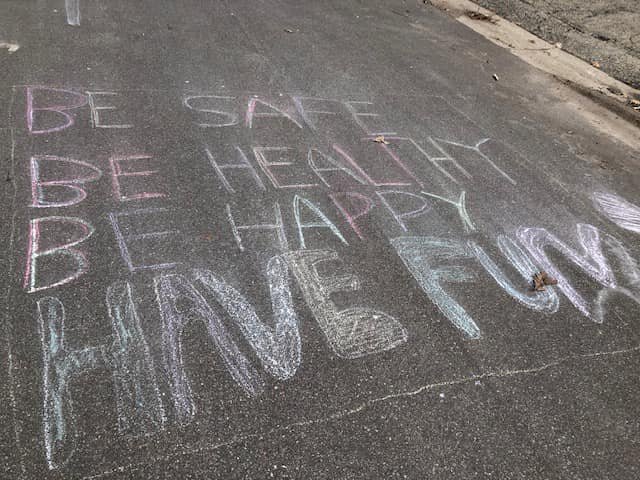 BE SAFE
BE HEALTHY
BE HAPPY
HAVE FUN